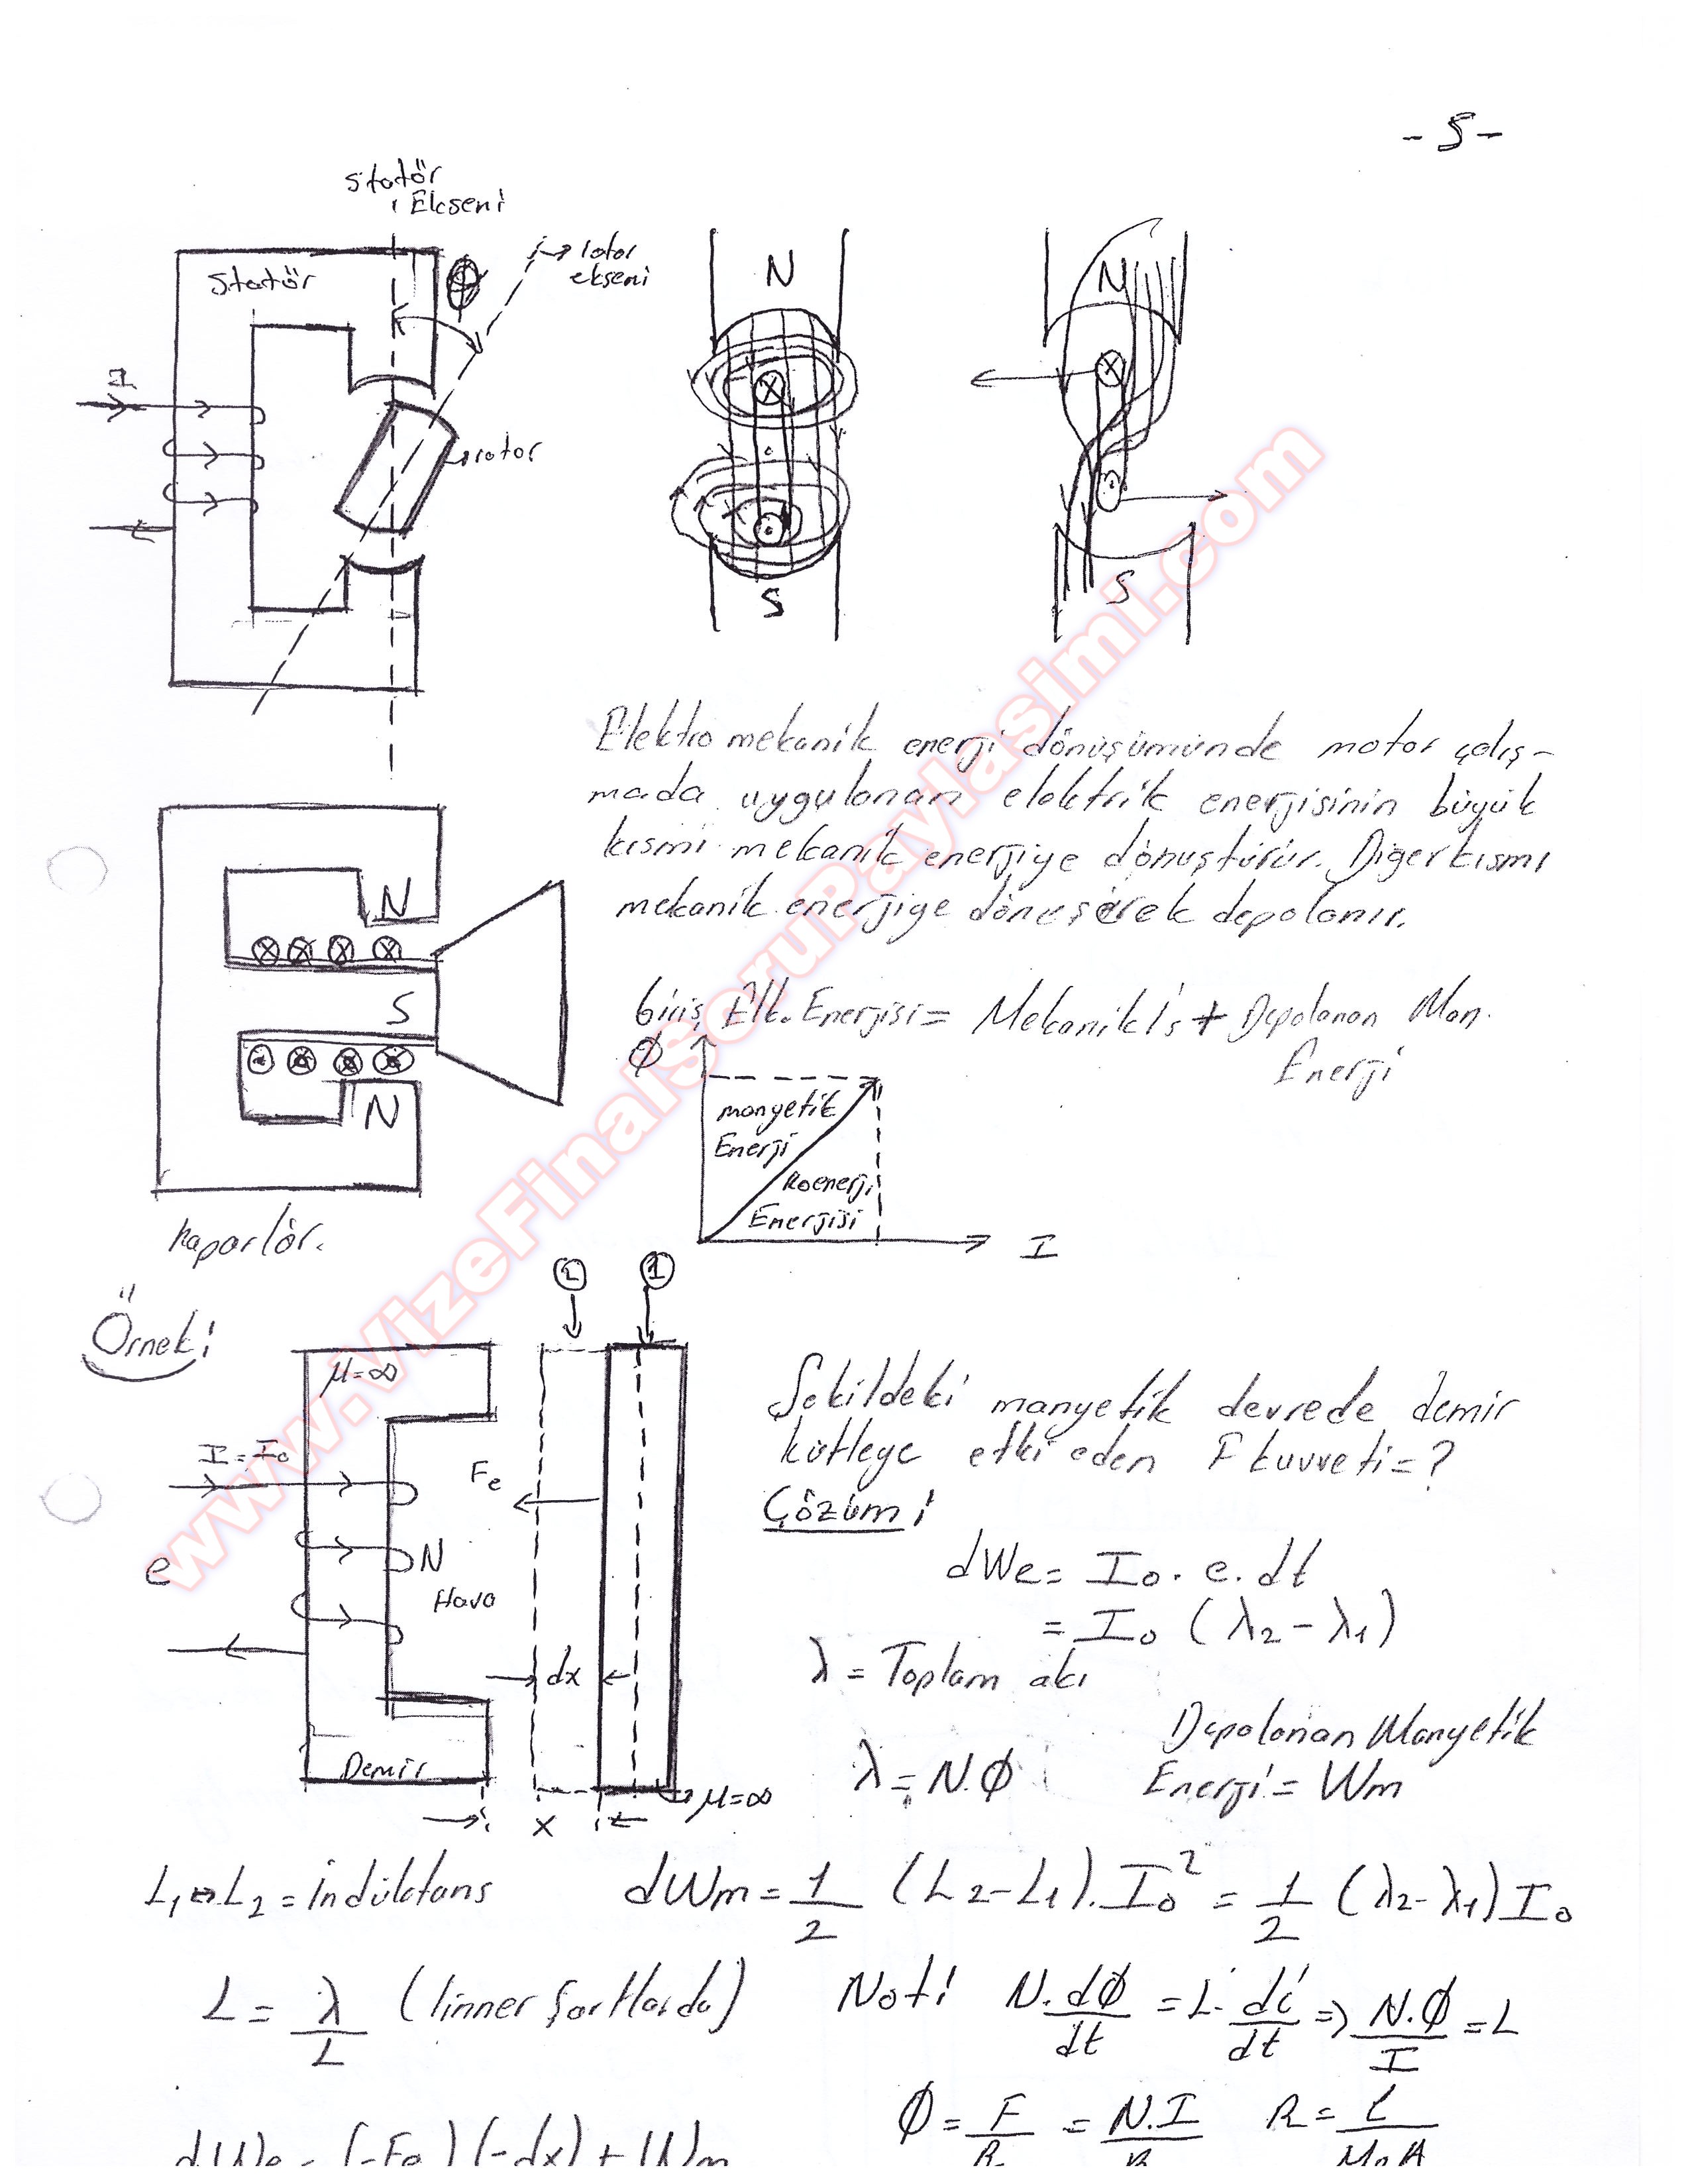 - 5 -
Statör
Ekseni
rotor
ekseni
Statör
I
rotor
N
S
N
S
Elektro mekanik enerji dönüşümünde motor çalış-
mada uygulanan elektrik enerjisinin büyük
kısmı mekanik enerjiye dönüştürür. Diğer kısmı
mekanik enerjiye dönüşerek depolanır.
N
S
N
Giriş Elk. Enerjisi = Mekanik İş + Depolanan Man.
Enerji
Φ
manyetik
Enerji
Koenerji
Enerjisi
I
hoparlör.
Örnek:
2
1
μ=∞
I=I₀
Fe
e
N
Hava
dx
Demir
x
μ=∞
Şekildeki manyetik devrede demir
kütleye etki eden F kuvveti=?
Çözüm:
dWe = I₀. e. dt
= I₀ (λ₂ - λ₁)
λ = Toplam akı
λ = N.Φ
Depolanan Manyetik
Enerji = Wm
L₁ L₂ = İndüktans
dWm = 1/2 (L₂-L₁). I₀² = 1/2 (λ₂-λ₁) I₀
L = λ/L (linner şartlarda)
Not: N.dΦ/dt = L. di/dt ⇒ N.Φ/I = L
Φ = F/R = N.I/R R = l/μ₀A
dWe = (-Fe)(-dx) + Wm
www.VizeFinalSoruPaylasimi.com